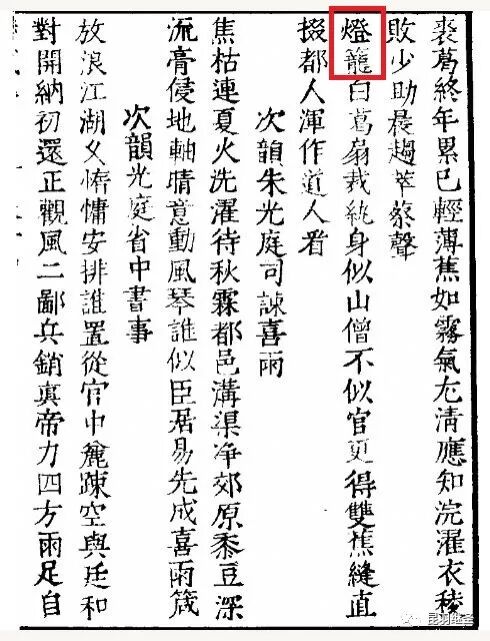 裘葛終年累已輕薄蕉如霧氣尤清應知浣濯衣稜
敗少助晨趨萃蔡聲
燈籠白葛扇裁紈身似山僧不似官更得雙蕉縫直
掇都人渾作道人看
次韻朱光庭司諫喜雨
焦枯連夏火洗濯待秋霖都邑溝渠净郊原黍豆深
流膏侵地軸晴意動風琴誰似臣居易先成喜雨箴
次韻光庭省中書事
放浪江湖久惰慵安排誰置從官中麄踈空與廷和
對開納初還正觀風二鄙兵銷真帝力四方雨足自
昆羽继圣